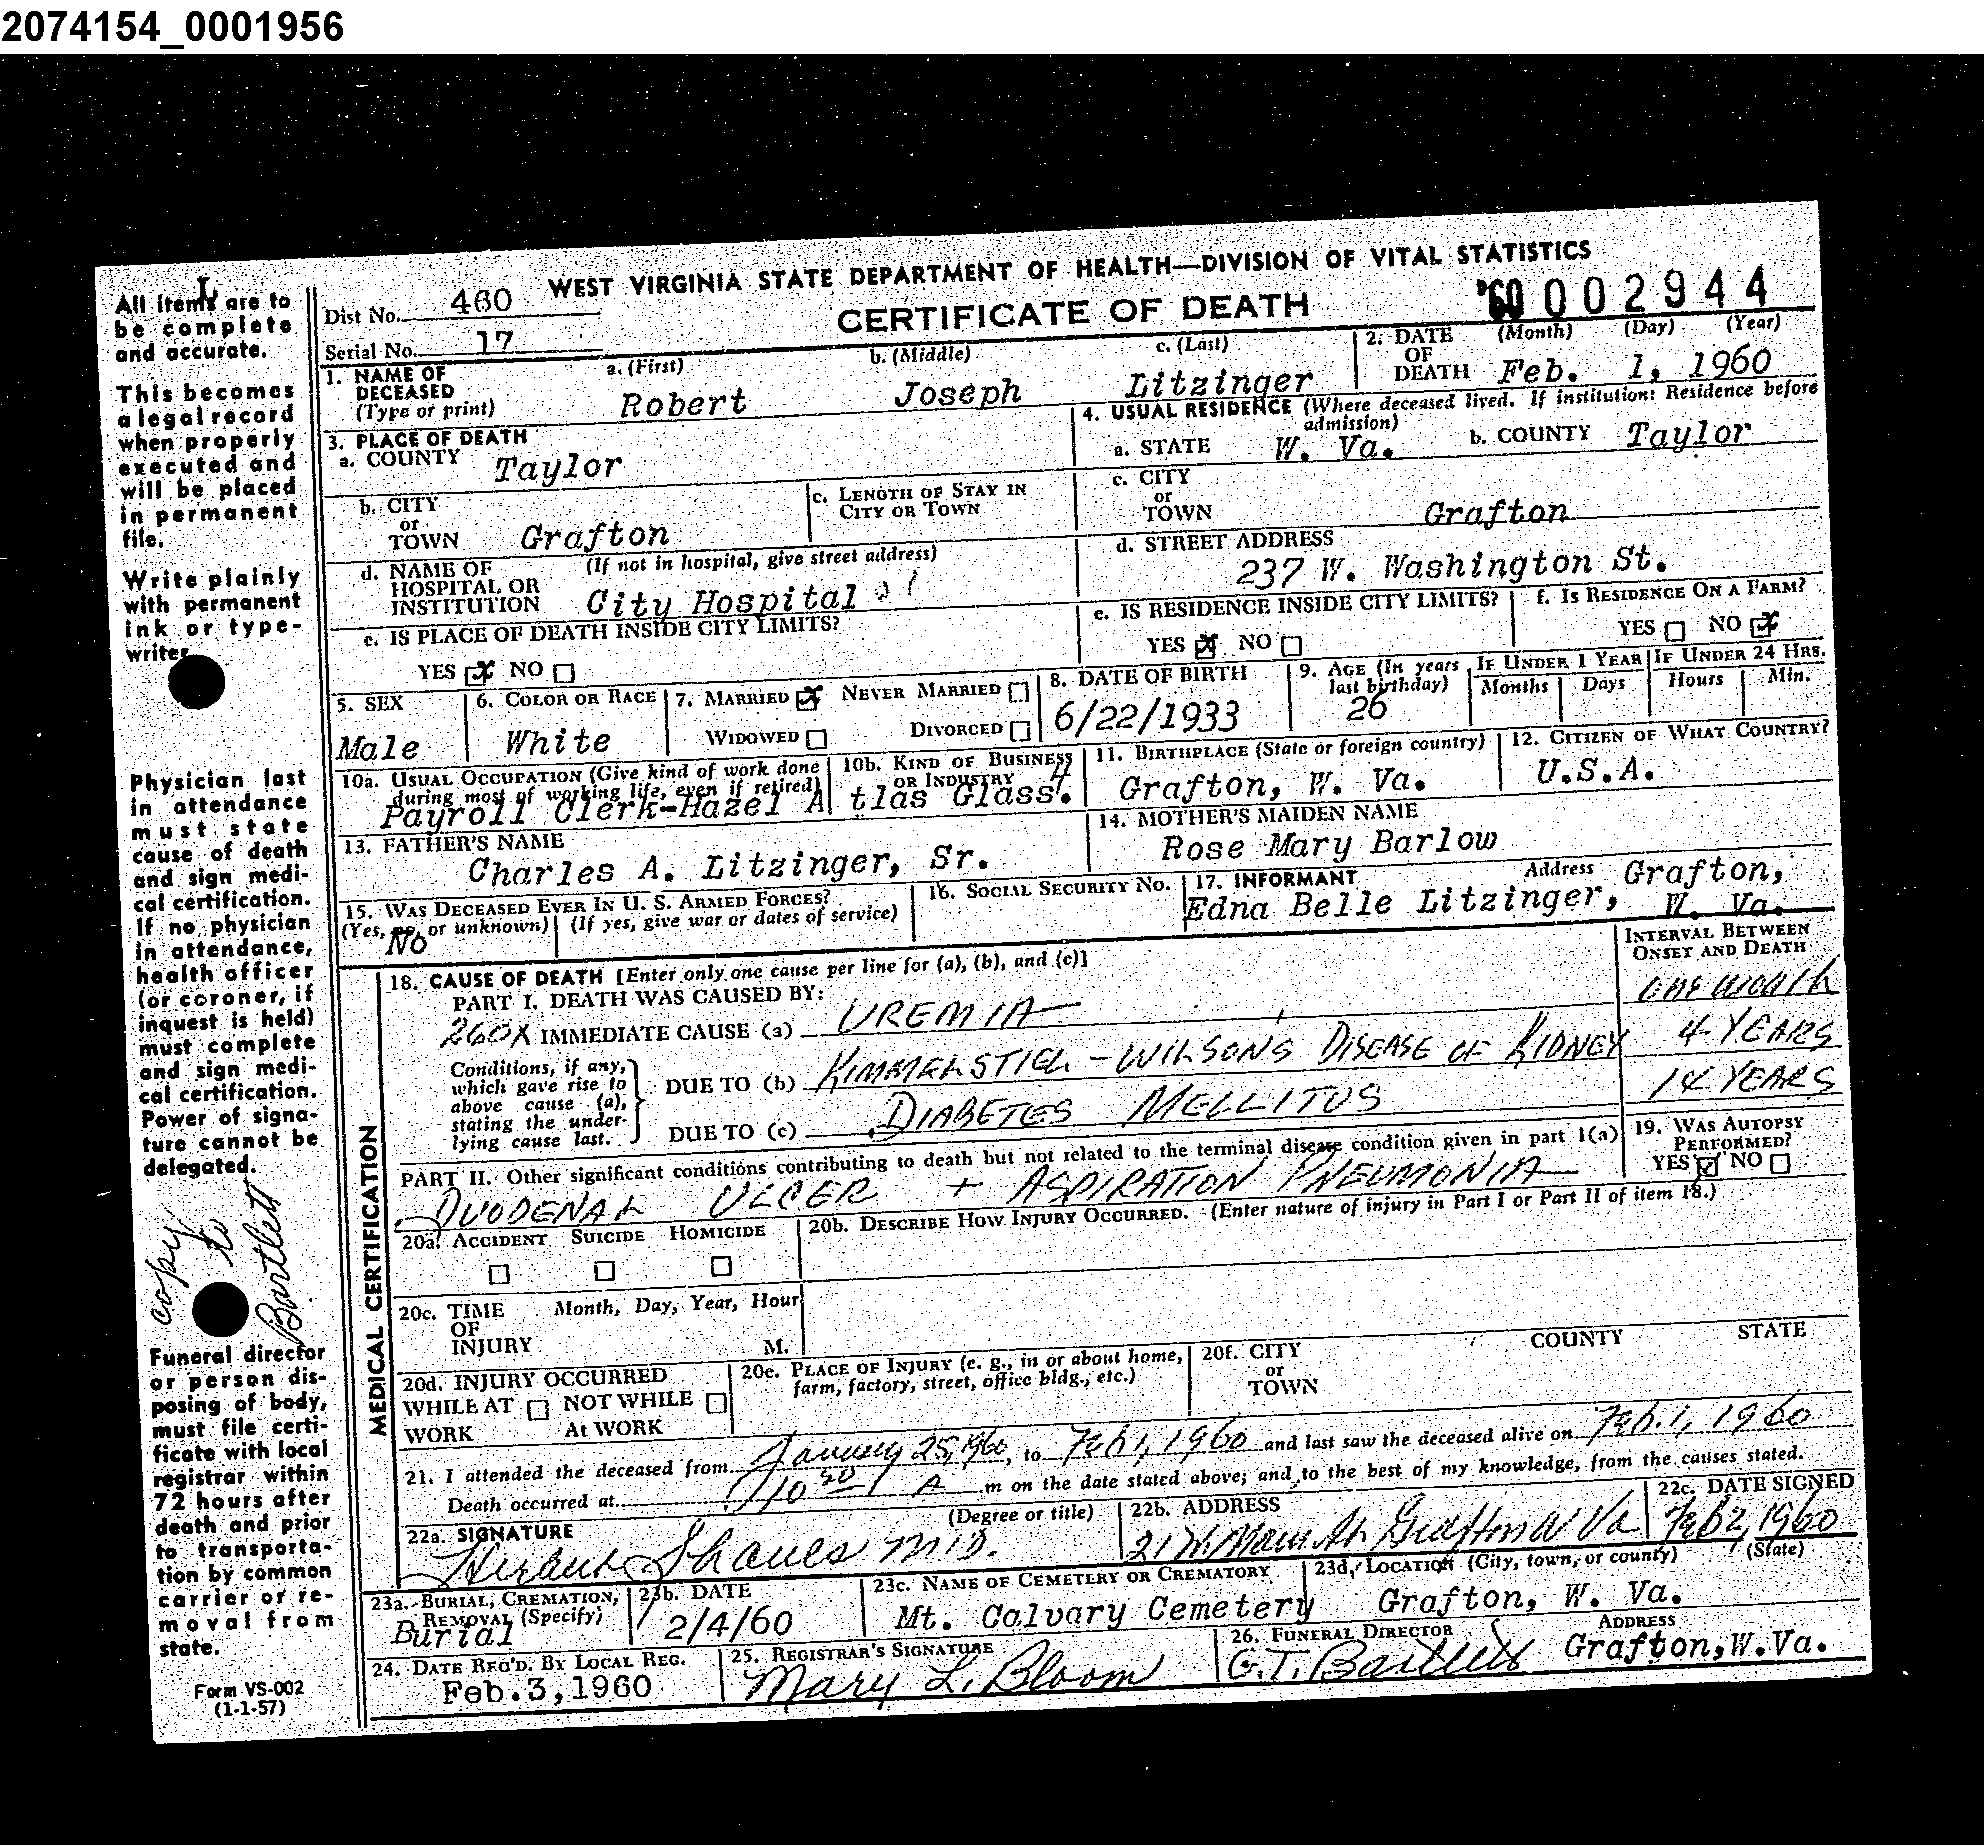 2074154_0001956
WEST VIRGINIA STATE DEPARTMENT OF HEALTH—DIVISION OF VITAL STATISTICS
CERTIFICATE OF DEATH
'60 002944
Dist No. 460
Serial No. 17
All items are to
be complete
and accurate.
This becomes
a legal record
when properly
executed and
will be placed
in permanent
file.
Write plainly
with permanent
ink or type-
writer
Physician last
in attendance
must state
cause of death
and sign medi-
cal certification.
If no physician
in attendance,
health officer
(or coroner, if
inquest is held)
must complete
and sign medi-
cal certification.
Power of signa-
ture cannot be
delegated.
copy
to
Bartlett
Funeral director
or person dis-
posing of body,
must file certi-
ficate with local
registrar within
72 hours after
death and prior
to transporta-
tion by common
carrier or re-
moval from
state.
Form VS-002
(1-1-57)
1. NAME OF DECEASED (Type or print) a. (First) Robert b. (Middle) Joseph c. (Last) Litzinger
2. DATE OF DEATH (Month) (Day) (Year) Feb. 1, 1960
3. PLACE OF DEATH
a. COUNTY Taylor
b. CITY or TOWN Grafton
c. LENGTH OF STAY IN CITY OR TOWN
d. NAME OF HOSPITAL OR INSTITUTION (If not in hospital, give street address) City Hospital
e. IS PLACE OF DEATH INSIDE CITY LIMITS?
YES X NO
4. USUAL RESIDENCE (Where deceased lived. If institution: Residence before admission)
a. STATE W. Va. b. COUNTY Taylor
c. CITY or TOWN Grafton
d. STREET ADDRESS 237 W. Washington St.
e. IS RESIDENCE INSIDE CITY LIMITS?
YES X NO
f. IS RESIDENCE ON A FARM?
YES NO X
5. SEX Male
6. COLOR OR RACE White
7. MARRIED X NEVER MARRIED
WIDOWED DIVORCED
8. DATE OF BIRTH 6/22/1933
9. AGE (In years last birthday) 26
IF UNDER 1 YEAR Months Days
IF UNDER 24 HRS. Hours Min.
10a. USUAL OCCUPATION (Give kind of work done during most of working life, even if retired) Payroll Clerk-Hazel A
10b. KIND OF BUSINESS OR INDUSTRY tlas Glass. 4
11. BIRTHPLACE (State or foreign country) Grafton, W. Va.
12. CITIZEN OF WHAT COUNTRY? U.S.A.
13. FATHER'S NAME Charles A. Litzinger, Sr.
14. MOTHER'S MAIDEN NAME Rose Mary Barlow
15. WAS DECEASED EVER IN U. S. ARMED FORCES?
(Yes, no, or unknown) (If yes, give war or dates of service)
No
16. SOCIAL SECURITY NO.
17. INFORMANT Address
Edna Belle Litzinger, Grafton, W. Va.
MEDICAL CERTIFICATION
18. CAUSE OF DEATH [Enter only one cause per line for (a), (b), and (c)]
INTERVAL BETWEEN ONSET AND DEATH
PART I. DEATH WAS CAUSED BY:
260X IMMEDIATE CAUSE (a) UREMIA one month
Conditions, if any, which gave rise to above cause (a), stating the underlying cause last.
DUE TO (b) KIMMELSTIEL-WILSONS DISEASE OF KIDNEY 4 YEARS
DUE TO (c) DIABETES MELLITUS 14 YEARS
PART II. Other significant conditions contributing to death but not related to the terminal disease condition given in part I(a)
DUODENAL ULCER + ASPIRATION PNEUMONIA
19. WAS AUTOPSY PERFORMED?
YES ✓ NO
20a. ACCIDENT SUICIDE HOMICIDE
20b. DESCRIBE HOW INJURY OCCURRED. (Enter nature of injury in Part I or Part II of item 18.)
20c. TIME OF INJURY Month, Day, Year, Hour M.
20d. INJURY OCCURRED
WHILE AT WORK NOT WHILE At WORK
20e. PLACE OF INJURY (e. g., in or about home, farm, factory, street, office bldg., etc.)
20f. CITY or TOWN COUNTY STATE
21. I attended the deceased from January 25, 1960, to Feb 1, 1960 and last saw the deceased alive on Feb. 1, 1960
Death occurred at 10 50 A m on the date stated above; and to the best of my knowledge, from the causes stated.
22a. SIGNATURE (Degree or title) Shaues M.D.
22b. ADDRESS 21 W. Main St. Grafton W Va
22c. DATE SIGNED Feb 2, 1960
23a. BURIAL, CREMATION, REMOVAL (Specify) Burial
23b. DATE 2/4/60
23c. NAME OF CEMETERY OR CREMATORY Mt. Calvary Cemetery
23d. LOCATION (City, town, or county) (State) Grafton, W. Va.
24. DATE REC'D. BY LOCAL REG. Feb.3,1960
25. REGISTRAR'S SIGNATURE Mary L. Bloom
26. FUNERAL DIRECTOR G.T. Bartlett ADDRESS Grafton,W.Va.